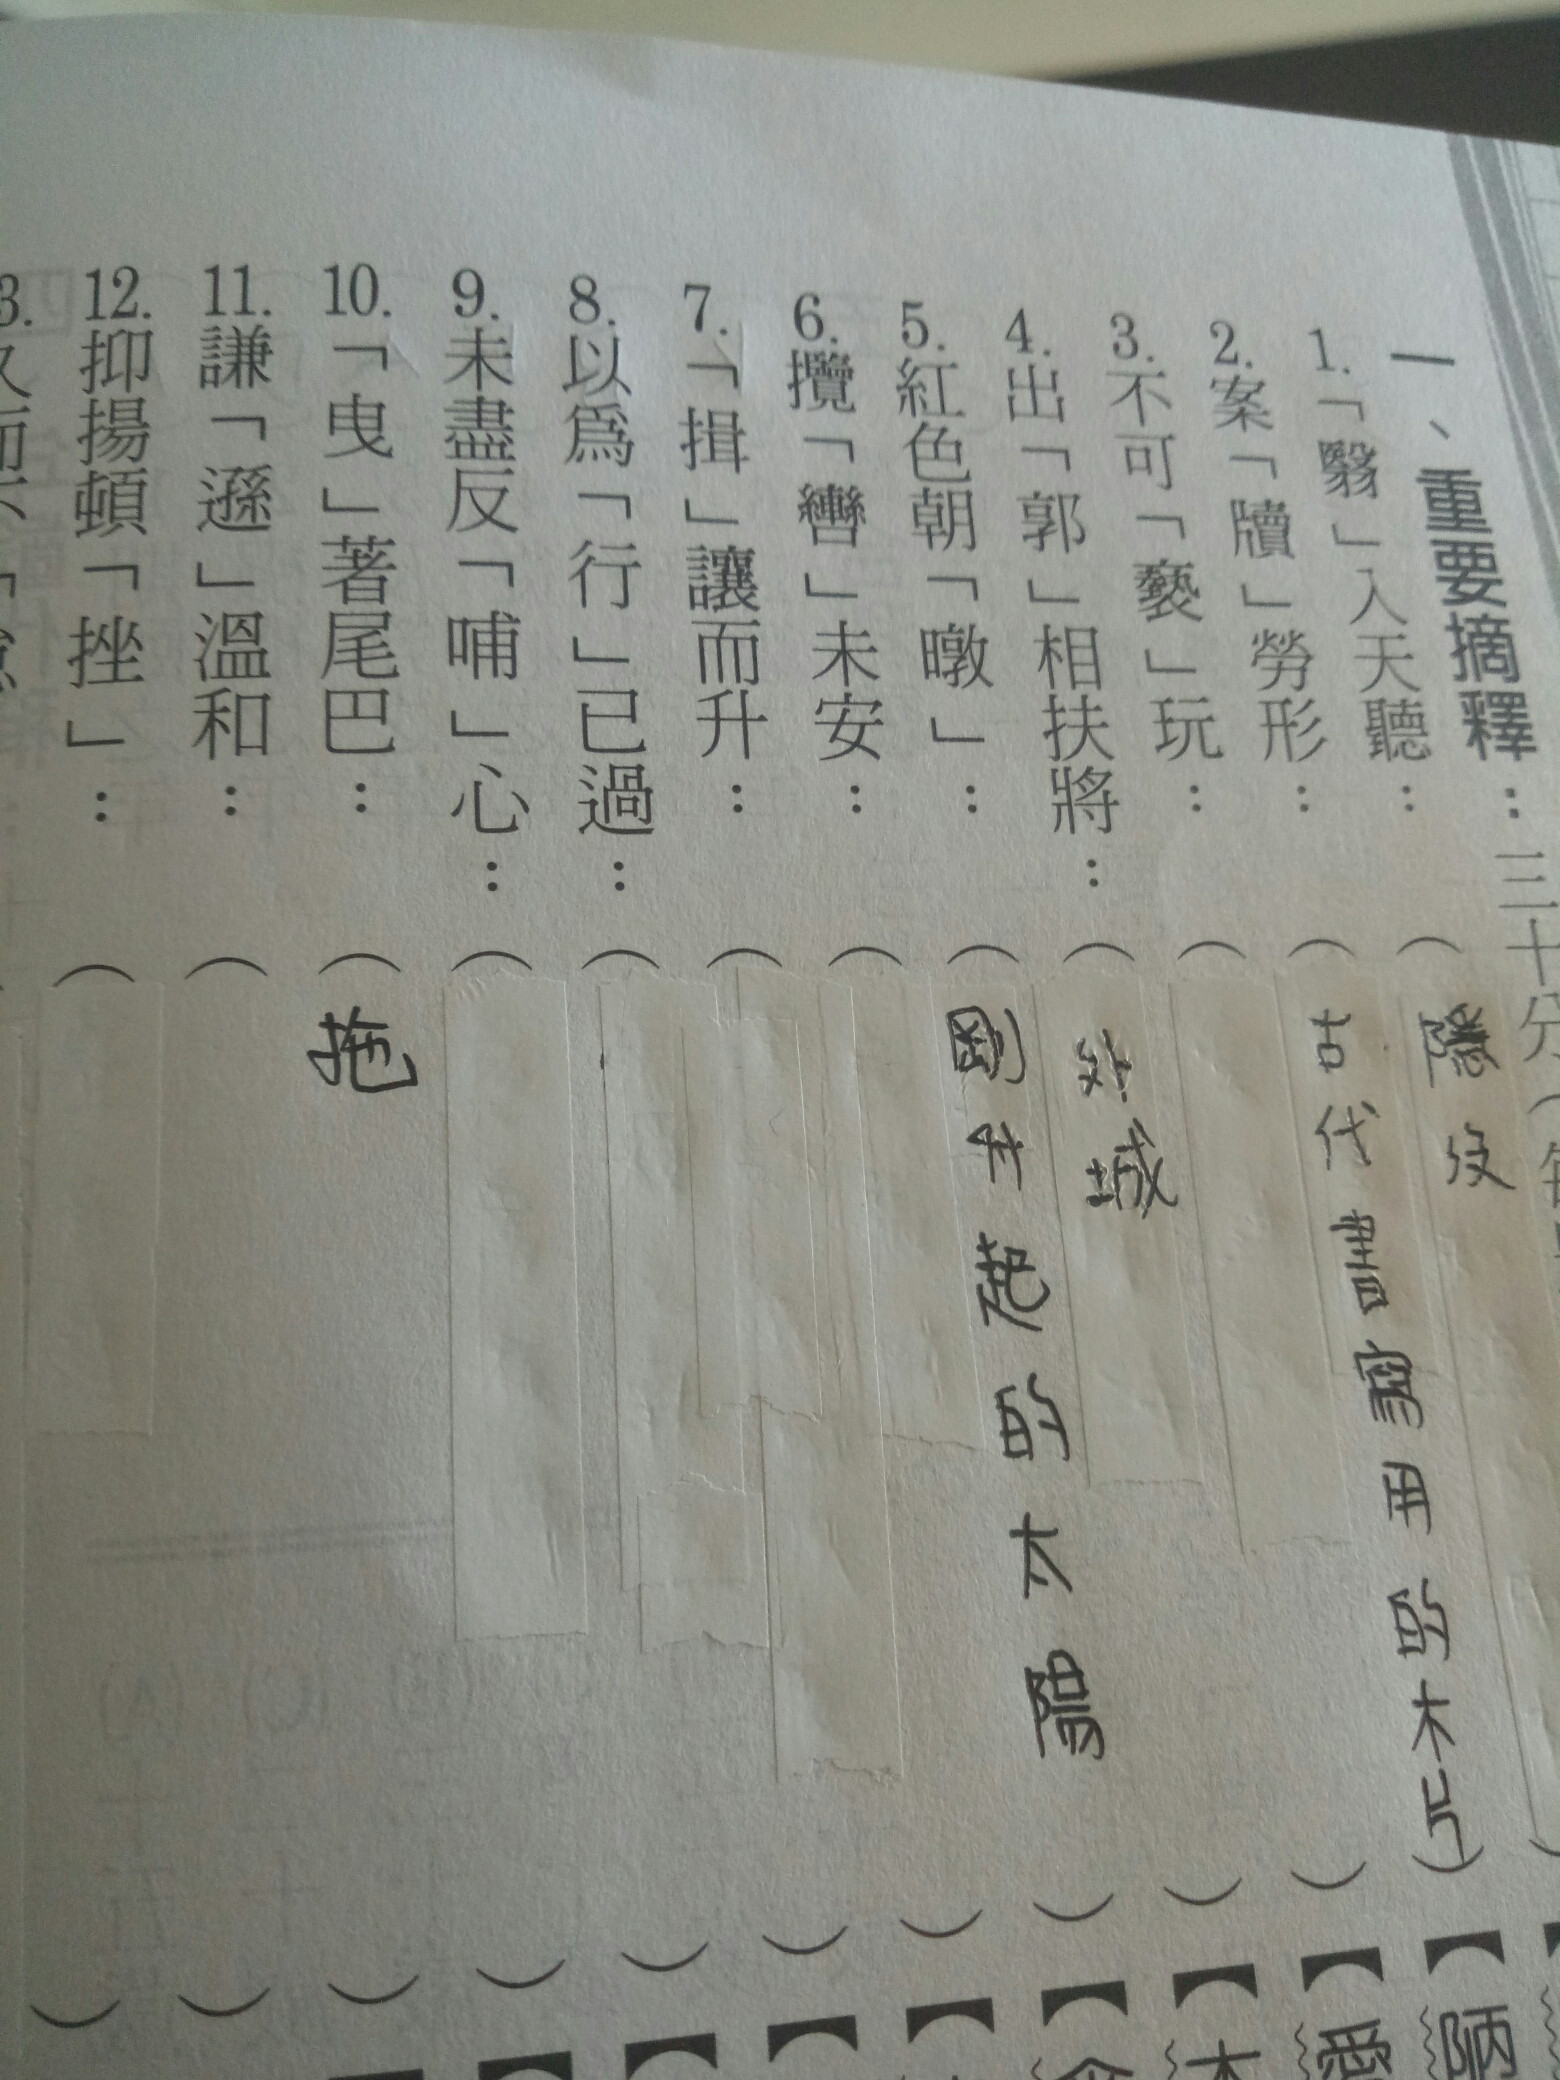 一、重要摘釋：三十分（每
1.「翳」入天聽：（隱沒）
2.案「牘」勞形：（古代書寫用的木片）【陋
3.不可「褻」玩：（ ）【愛
4.出「郭」相扶將：（外城）【木
5.紅色朝「暾」：（剛升起的太陽）【
6.攬「轡」未安：（ ）【
7.「揖」讓而升：（ ）【
8.以為「行」已過：（ ）【
9.未盡反「哺」心：（ ）【
10.「曳」著尾巴：（拖）【
11.謙「遜」溫和：（ ）
12.抑揚頓「挫」：（ ）
3.